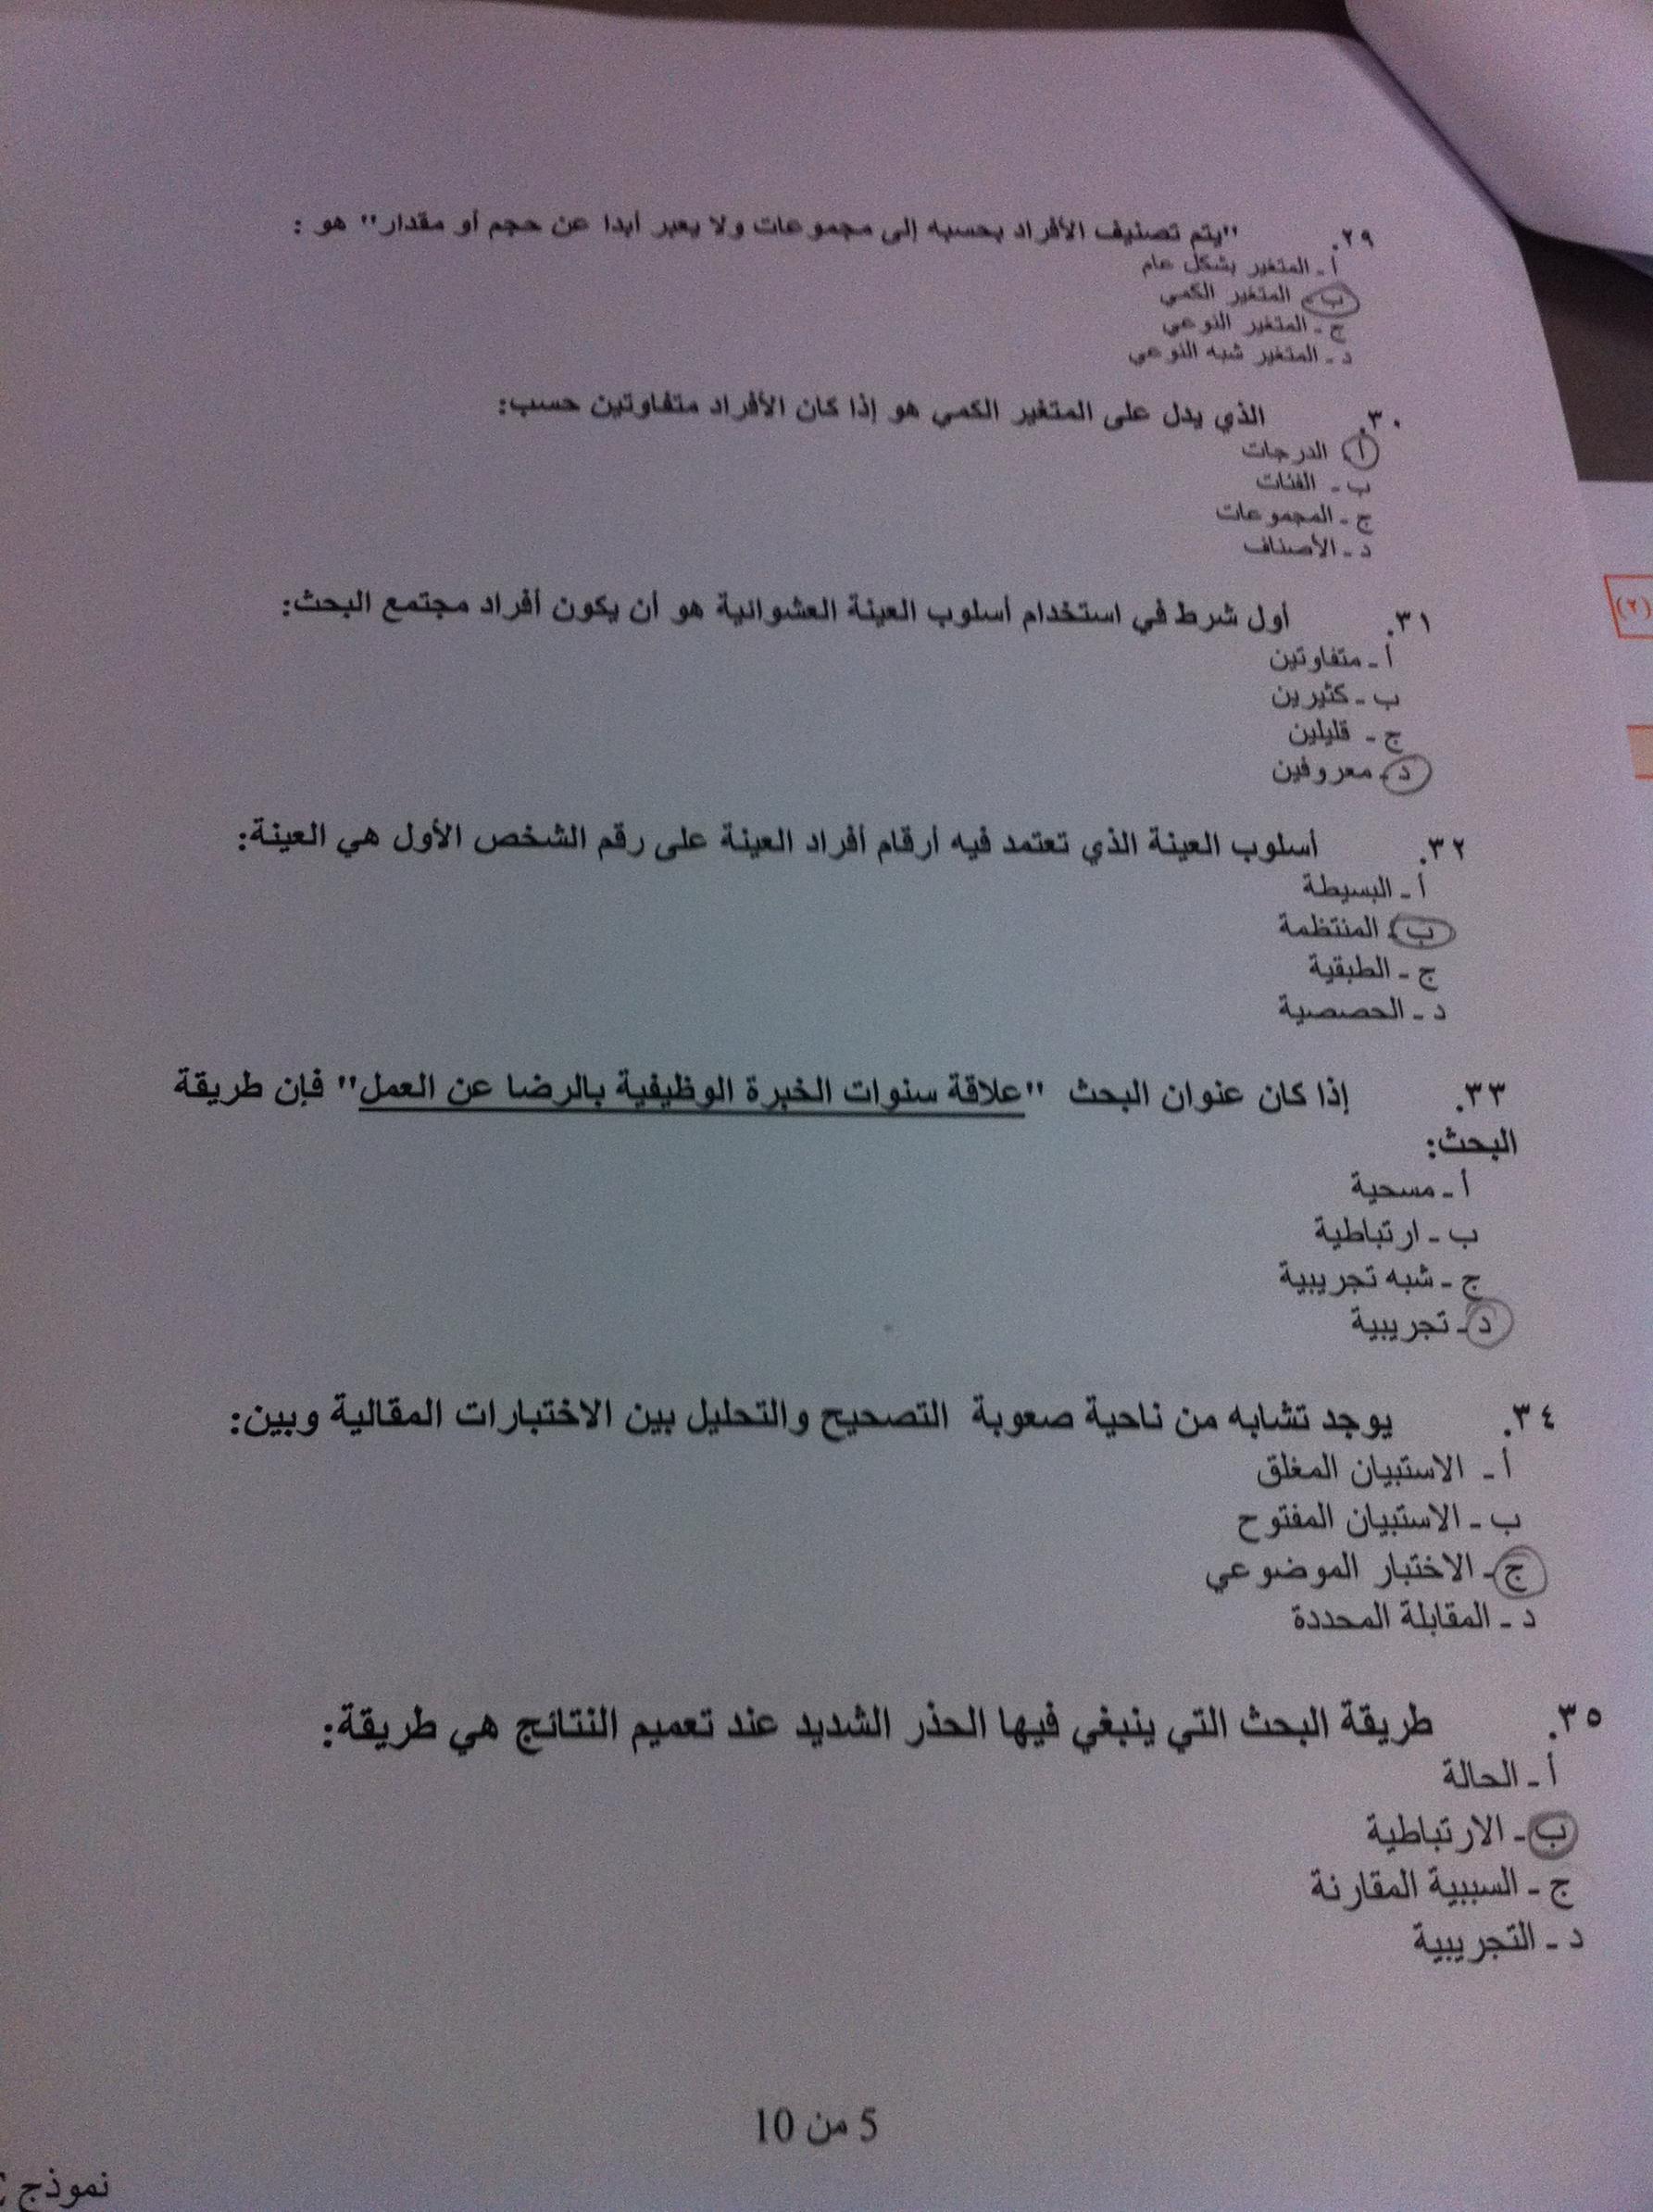 ٢٩. "يتم تصنيف الأفراد بحسبه إلى مجموعات ولا يعبر أبدا عن حجم أو مقدار" هو :
أ - المتغير بشكل عام
ب - المتغير الكمي
ج - المتغير النوعي
د - المتغير شبه النوعي
٣٠. الذي يدل على المتغير الكمي هو إذا كان الأفراد متفاوتين حسب:
أ - الدرجات
ب - الفئات
ج - المجموعات
د - الأصناف
٣١. أول شرط في استخدام أسلوب العينة العشوائية هو أن يكون أفراد مجتمع البحث:
أ - متفاوتين
ب - كثيرين
ج - قليلين
د - معروفين
(٢)
٣٢. أسلوب العينة الذي تعتمد فيه أرقام أفراد العينة على رقم الشخص الأول هي العينة:
أ - البسيطة
ب - المنتظمة
ج - الطبقية
د - الحصصية
٣٣. إذا كان عنوان البحث "علاقة سنوات الخبرة الوظيفية بالرضا عن العمل" فإن طريقة
البحث:
أ - مسحية
ب - ارتباطية
ج - شبه تجريبية
د - تجريبية
٣٤. يوجد تشابه من ناحية صعوبة التصحيح والتحليل بين الاختبارات المقالية وبين:
أ - الاستبيان المغلق
ب - الاستبيان المفتوح
ج - الاختبار الموضوعي
د - المقابلة المحددة
٣٥. طريقة البحث التي ينبغي فيها الحذر الشديد عند تعميم النتائج هي طريقة:
أ - الحالة
ب - الارتباطية
ج - السببية المقارنة
د - التجريبية
5 من 10
نموذج